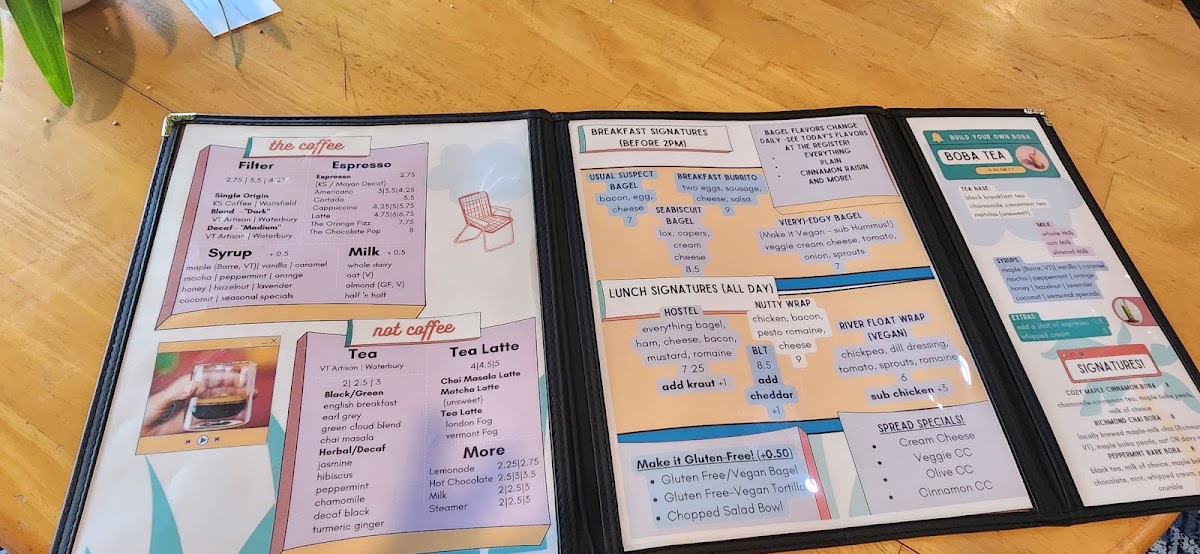 the coffee
Filter
2.75 | 3.5 | 4.25
Single Origin
KS Coffee | Waitsfield
Blend - "Dark"
VT Artisan | Waterbury
Decaf - "Medium"
VT Artisan | Waterbury
Espresso
Espresso 2.75
(KS / Mayan Decaf)
Americano 3|3.5|4.25
Cortado 3.5
Cappuccino 4.25|5|5.75
Latte 4.75|6|6.75
The Orange Fizz 7.75
The Chocolate Pop 8
Syrup + 0.5
maple (Barre, VT)| vanilla | caramel
mocha | peppermint | orange
honey | hazelnut | lavender
coconut | seasonal specials
Milk + 0.5
whole dairy
oat (V)
almond (GF, V)
half 'n half
not coffee
Tea
VT Artisan | Waterbury
2| 2.5 | 3
Black/Green
english breakfast
earl grey
green cloud blend
chai masala
Herbal/Decaf
jasmine
hibiscus
peppermint
chamomile
decaf black
turmeric ginger
Tea Latte
4|4.5|5
Chai Masala Latte
Matcha Latte
(unsweet)
Tea Latte
london Fog
vermont Fog
More
Lemonade 2.25|2.75
Hot Chocolate 2.5|3|3.5
Milk 2|2.5|3
Steamer 2|2.5|3
BREAKFAST SIGNATURES
(BEFORE 2PM)
BAGEL FLAVORS CHANGE
DAILY -SEE TODAY'S FLAVORS
AT THE REGISTER!
• EVERYTHING
• PLAIN
• CINNAMON RAISIN
AND MORE!
USUAL SUSPECT
BAGEL
bacon, egg,
cheese
7
BREAKFAST BURRITO
two eggs, sausage,
cheese, salsa
9
SEABISCUIT
BAGEL
lox, capers,
cream
cheese
8.5
V(ERY)-EDGY BAGEL
(Make it Vegan - sub Hummus!)
veggie cream cheese, tomato,
onion, sprouts
7
LUNCH SIGNATURES (ALL DAY)
HOSTEL
everything bagel,
ham, cheese, bacon,
mustard, romaine
7.25
add kraut +1
NUTTY WRAP
chicken, bacon,
pesto romaine,
cheese
9
BLT
8.5
add
cheddar
+1
RIVER FLOAT WRAP
(VEGAN)
chickpea, dill dressing,
tomato, sprouts, romaine
6
sub chicken +3
Make it Gluten-Free! (+0.50)
• Gluten Free/Vegan Bagel
• Gluten Free-Vegan Tortilla
• Chopped Salad Bowl
SPREAD SPECIALS!
• Cream Cheese
• Veggie CC
• Olive CC
• Cinnamon CC
BUILD YOUR OWN BOBA
BOBA TEA
TEA BASE:
black breakfast tea
chamomile cinnamon tea
matcha (unsweet)
MILK:
whole Milk
oat Milk
almond Milk
SYRUPS:
maple (Barre, VT)| vanilla | caramel
mocha | peppermint | orange
honey | hazelnut | lavender
coconut | seasonal specials
EXTRAS:
add a shot of espresso
whipped cream
SIGNATURES!
COZY MAPLE CINNAMON BOBA 8
chamomile-cinnamon tea, maple boba pearls,
milk of choice
RICHMOND CHAI BOBA 8
locally brewed maple-milk chai (Richmond
VT), maple boba pearls, oat OR dairy
PEPPERMINT BARK BOBA
black tea, milk of choice, maple
chocolate, mint, whipped cream,
crumble